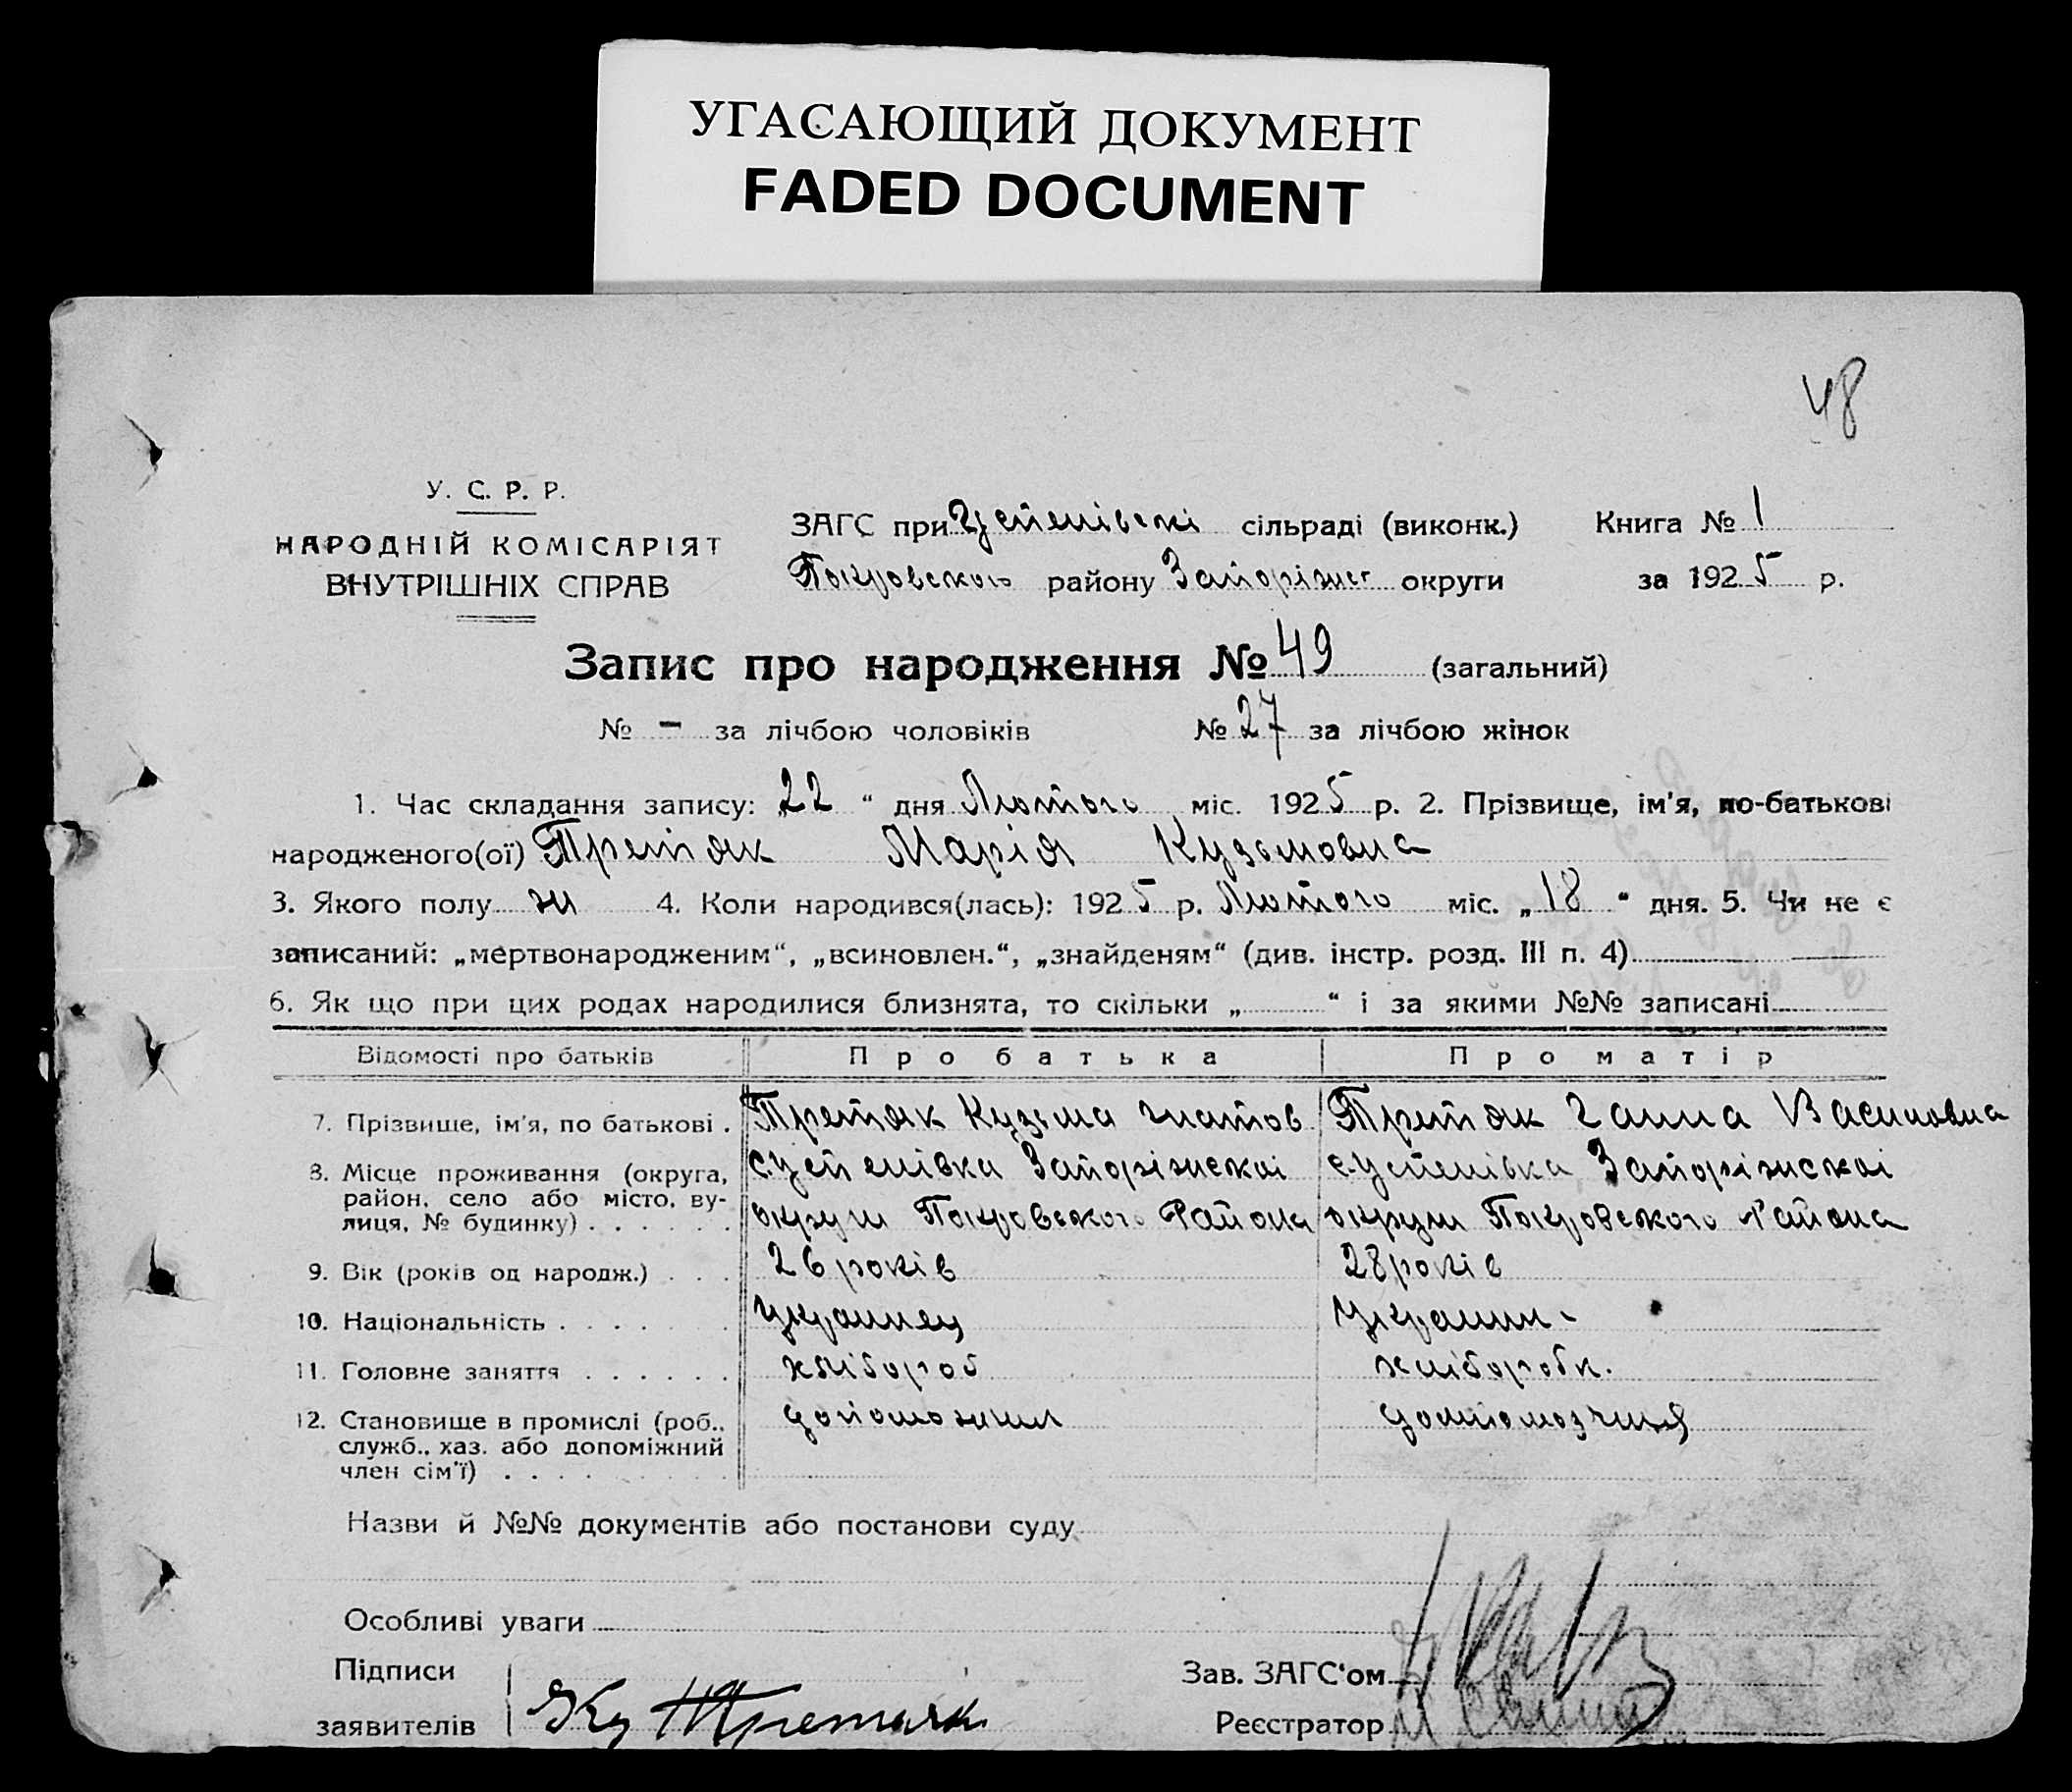 УГАСАЮЩИЙ ДОКУМЕНТ
FADED DOCUMENT
48
У. С. Р. Р.
НАРОДНІЙ КОМІСАРІЯТ
ВНУТРІШНІХ СПРАВ
ЗАГС при Успенівскі сільраді (виконк.) Книга № 1
Покровского району Запоріжс округи за 1925 р.
Запис про народження № 49 (загальний)
№ - за лічбою чоловіків № 27 за лічбою жінок
1. Час складання запису: „22“ дня Лютого міс. 1925 р. 2. Прізвище, ім'я, по-батькові
народженого(ої) Третяк Марія Кузьмовна
3. Якого полу ж 4. Коли народився(лась): 1925 р. Лютого міс. „18“ дня. 5. Чи не є
записаний: „мертвонародженим“, „всиновлен.“, „знайденям“ (див. інстр. розд. III п. 4)
6. Як що при цих родах народилися близнята, то скільки „ “ і за якими №№ записані
Відомості про батьків Про батька Про матір
7. Прізвище, ім'я, по батькові . Третяк Кузьма Гнатов Третяк Ганна Василовна
8. Місце проживання (округа, район, село або місто, вулиця, № будинку) . . . . . .
с Успенівка Запоріжскоі с Успенівка Запоріжскоі
округи Покровского Района округи Покровского Района
9. Вік (років од народж.) . . . 26 років 28 років
10. Національність . . . . . . Украинец Украинк-
11. Головне заняття . . . . . . хлібороб хліборобк.
12. Становище в промислі (роб., служб., хаз. або допоміжний член сім'ї) . . . . . . . .
Назви й №№ документів або постанови суду
Особливі уваги
Підписи
заявителів Ку Третяк
Зав. ЗАГС'ом
Реєстратор